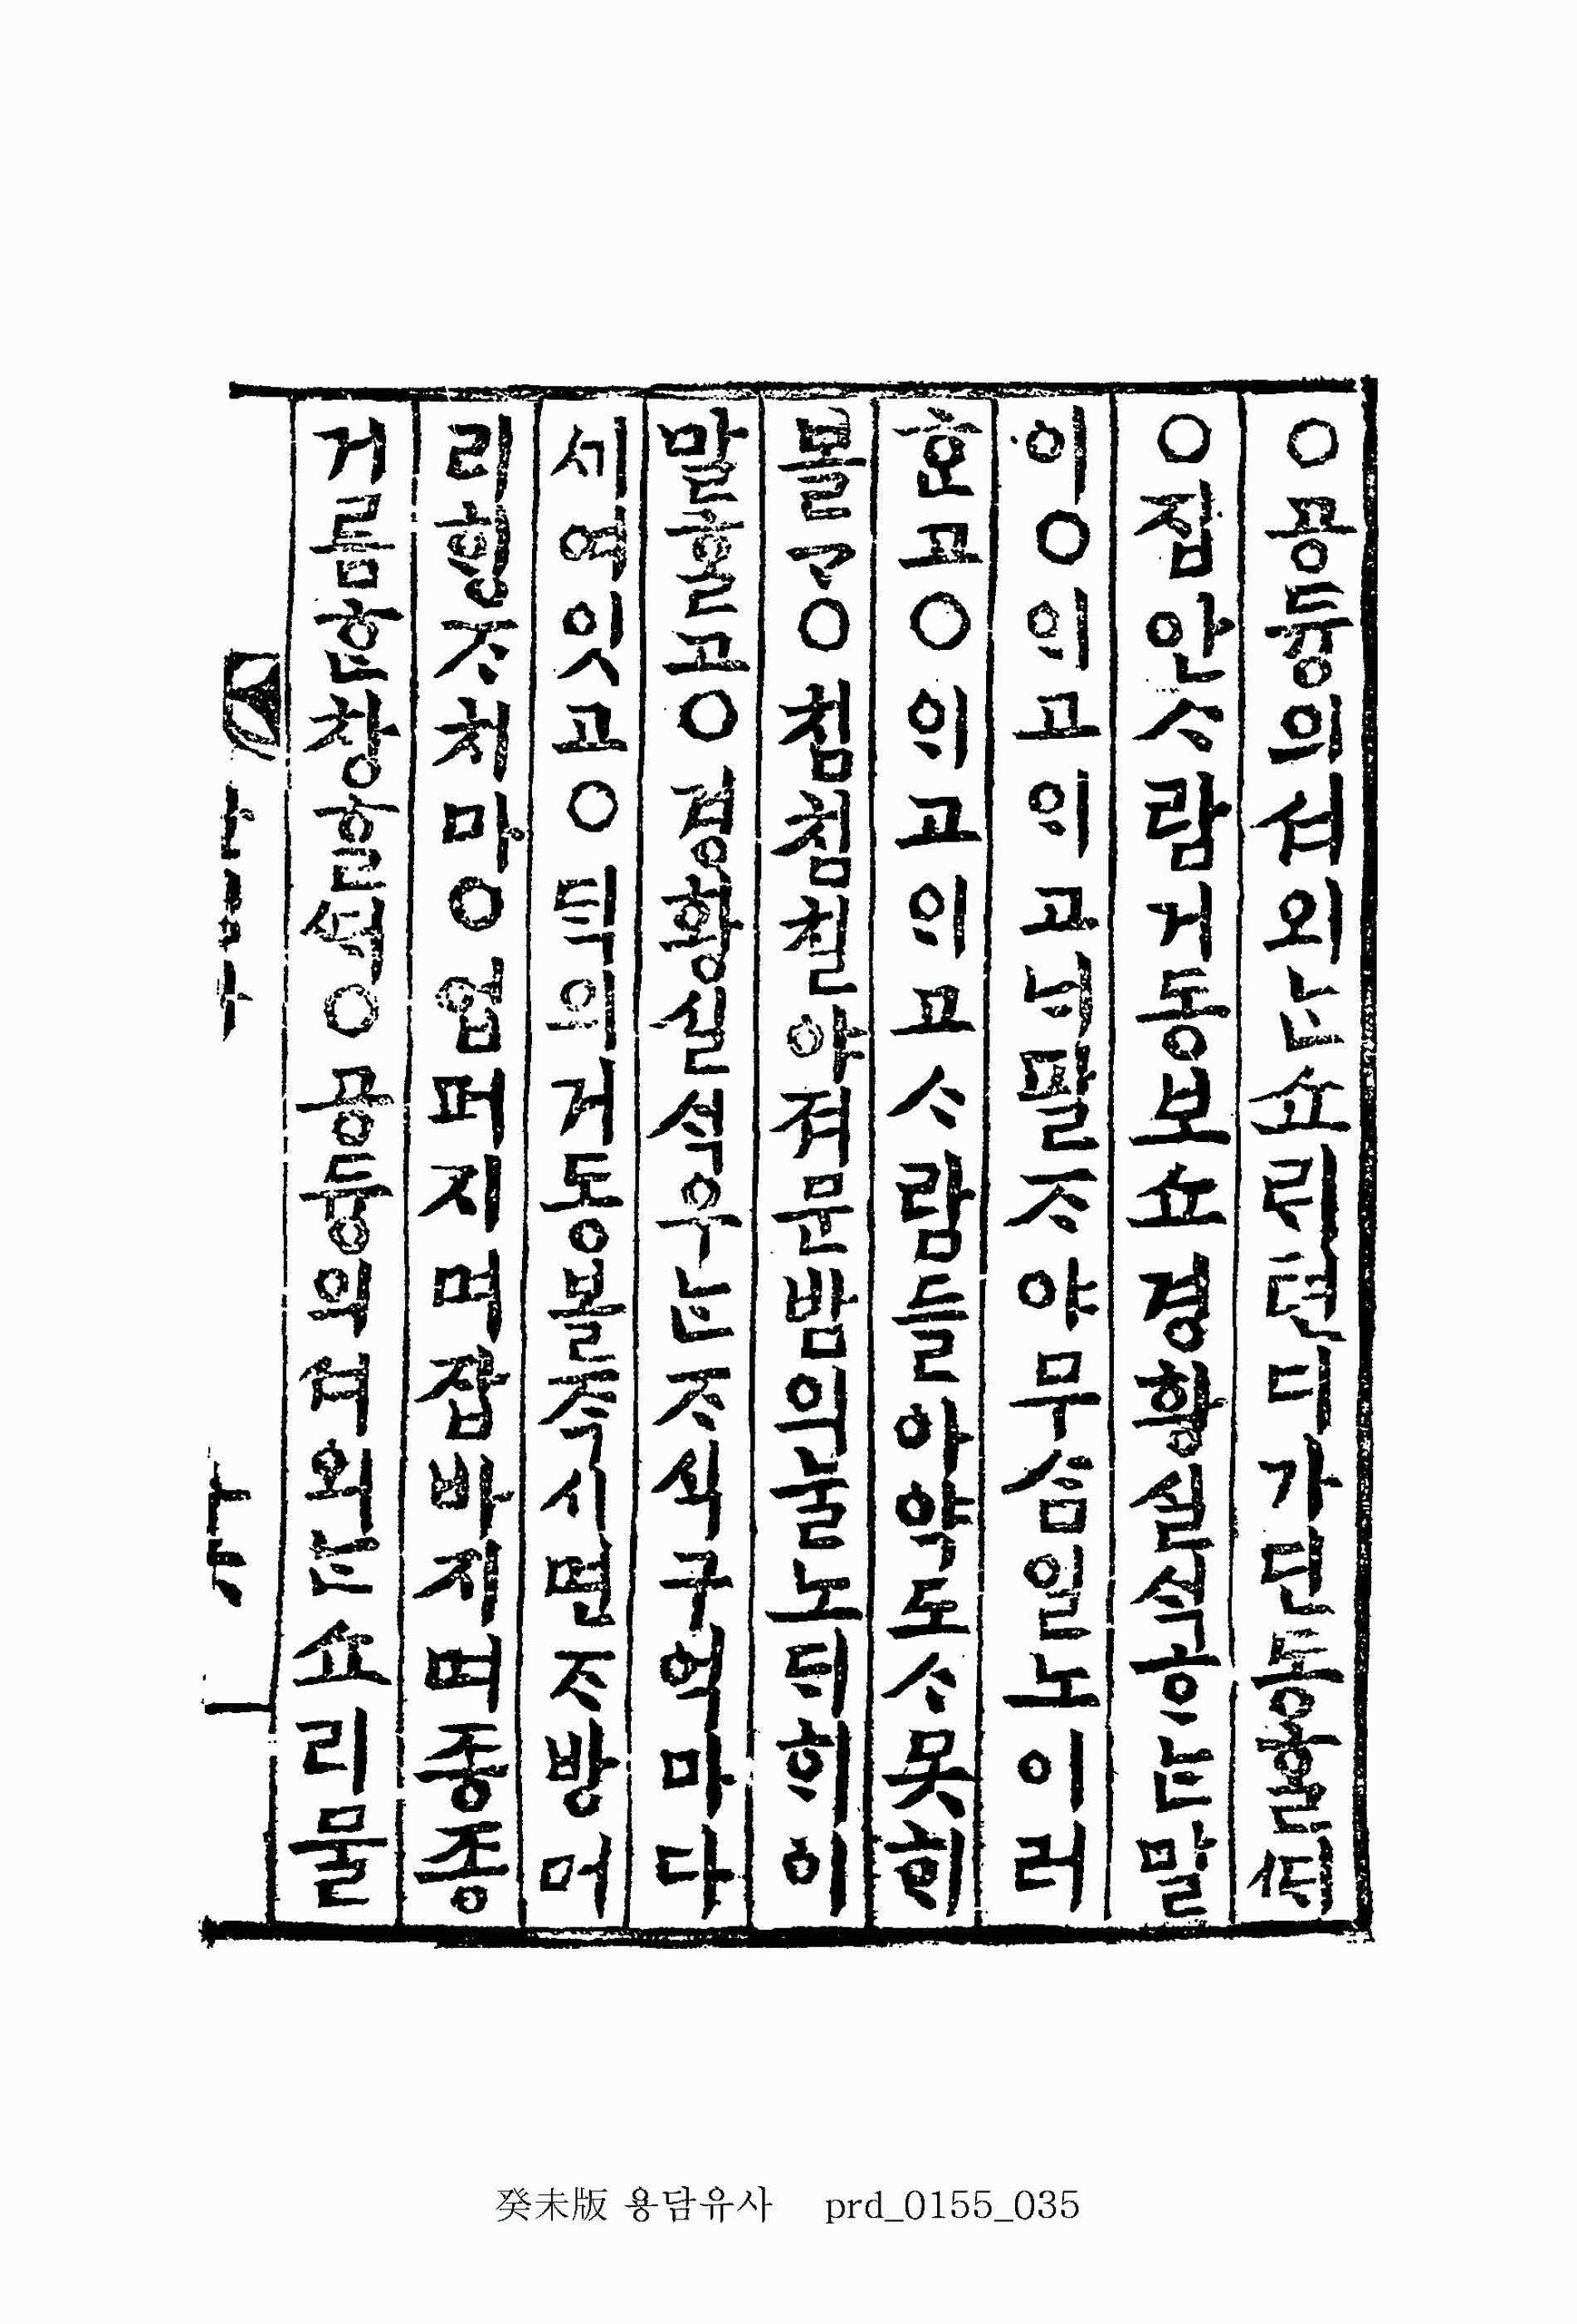 ○공듕의셔외ᄂᆞᆫ쇼ᄅᆡ텬디가딘동ᄒᆞᆯᄯᆡ
○잠안ᄉᆞ람거동보쇼경황실ᄉᆡᆨᄒᆞᄂᆞᆫ말
이○ᄋᆡ고ᄋᆡ고ᄂᆡ팔ᄌᆞ야무ᄉᆞᆷ일노이러
ᄒᆞᆫ고○ᄋᆡ고ᄋᆡ고ᄉᆞ람들아약도ᄉᆞ못ᄒᆡ
볼ᄀᆞ○침침칠야져문밤의눌노ᄃᆡᄒᆡ이
말ᄒᆞᆯ고○경황실ᄉᆡᆨ우ᄂᆞᆫᄌᆞ식구억마다
세여잇고○ᄃᆡᆨ의거동볼ᄌᆞᆨ시면ᄌᆞ방머
리ᄒᆡᆼᄌᆞ치마○업퍼지며잡바지며죵죵
거름ᄒᆞᆫ창ᄒᆞᆯᄯᆡ○공듕의셔외ᄂᆞᆫ쇼리물
癸未版 용담유사 prd_0155_035